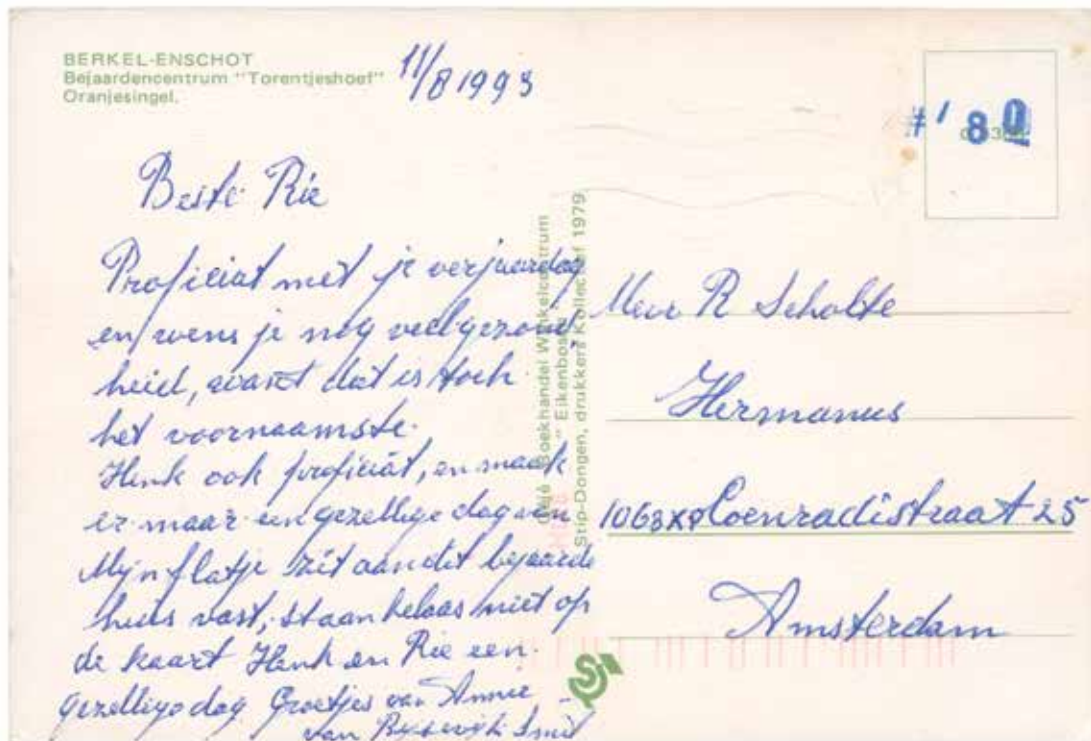 BERKEL-ENSCHOT
Bejaardencentrum "Torentjeshoef"
Oranjesingel.
11/8 1993
# ' 80
Beste Rie
Proficiat met je verjaardag
en wens je nog veel gezond,
heid, want dat is toch
het voornaamste.
Henk ook proficiat, en maak
er maar een gezellige dag van
Mijn flatje zit aan dit bejaarde
huis vast, staan helaas niet op
de kaart Henk en Rie een
gezellige dag Groetjes van Annie
van Smit
Boekhandel Winkelcentrum
" Eikenbosch "
Stip-Dongen, drukkers Kollectief 1979
Mevr R Scholte
Hermanus
1063XP Coenradistraat 25
Amsterdam